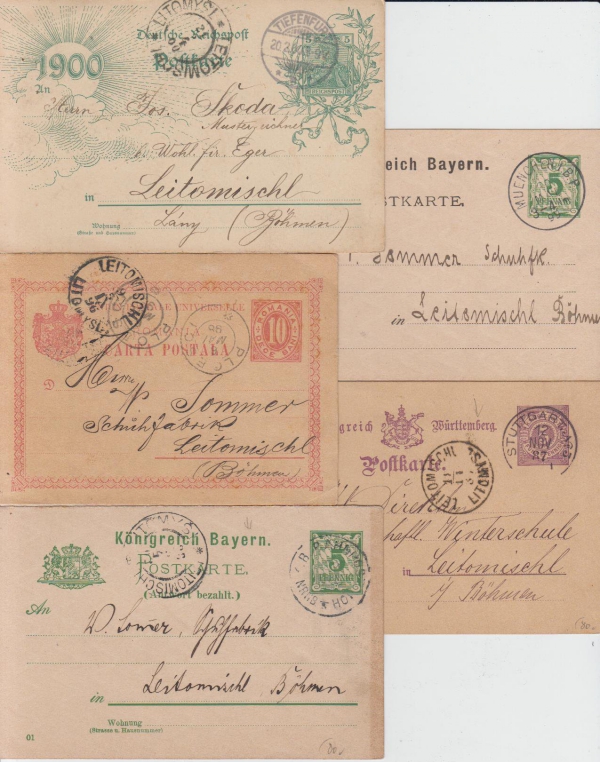 Deutsche Reichspost
Postkarte
1900
LEITOMISCHL
LITOMYSL
TIEFENFURT
20.2.
5
REICHSPOST
An
Herrn Jos. Škoda
Musterzeichner
Wohl. fir. Eger
in Leitomischl
Wohnung
(Straße und Hausnummer)
Lány (Böhmen)
Königreich Bayern.
POSTKARTE.
5
PFENNIG
MUENCHEN
Sommer Schuhfk.
in Leitomischl Böhmen
UNIVERSELLE
CARTA POSTALA
ROMANIA
10
DECE BANI
LEITOMISCHL
LITOMYSL
D
Herrn
Sommer
Schuhfabrik
Leitomischl
(Böhmen)
Württemberg.
Postkarte.
STUTTGART
12
NOV
87
LEITOMISCHL
LITOMYSL
Direc
Winterschule
in Leitomischl
Böhmen
80.-
Königreich Bayern.
POSTKARTE.
(Antwort bezahlt.)
5
PFENNIG
LITOMYSL
LEITOMISCHL
An
W. Somer, Schuffabrik
in Leitomischl Böhmen
Wohnung
(Strasse u. Hausnummer)
01
80.-